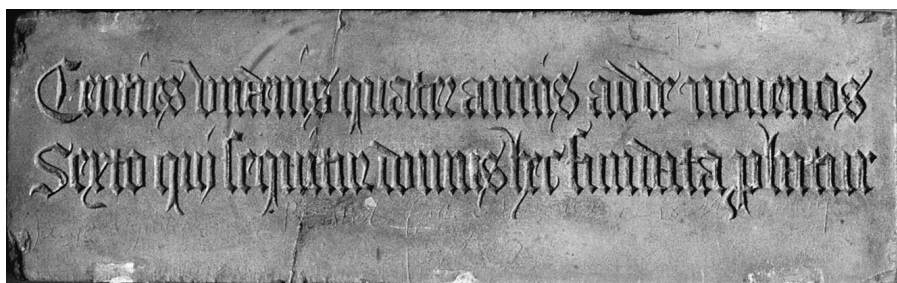 Centies vndenis quater annis adde nouenos
Sexto qui sequitur domus hec fundata pbatur